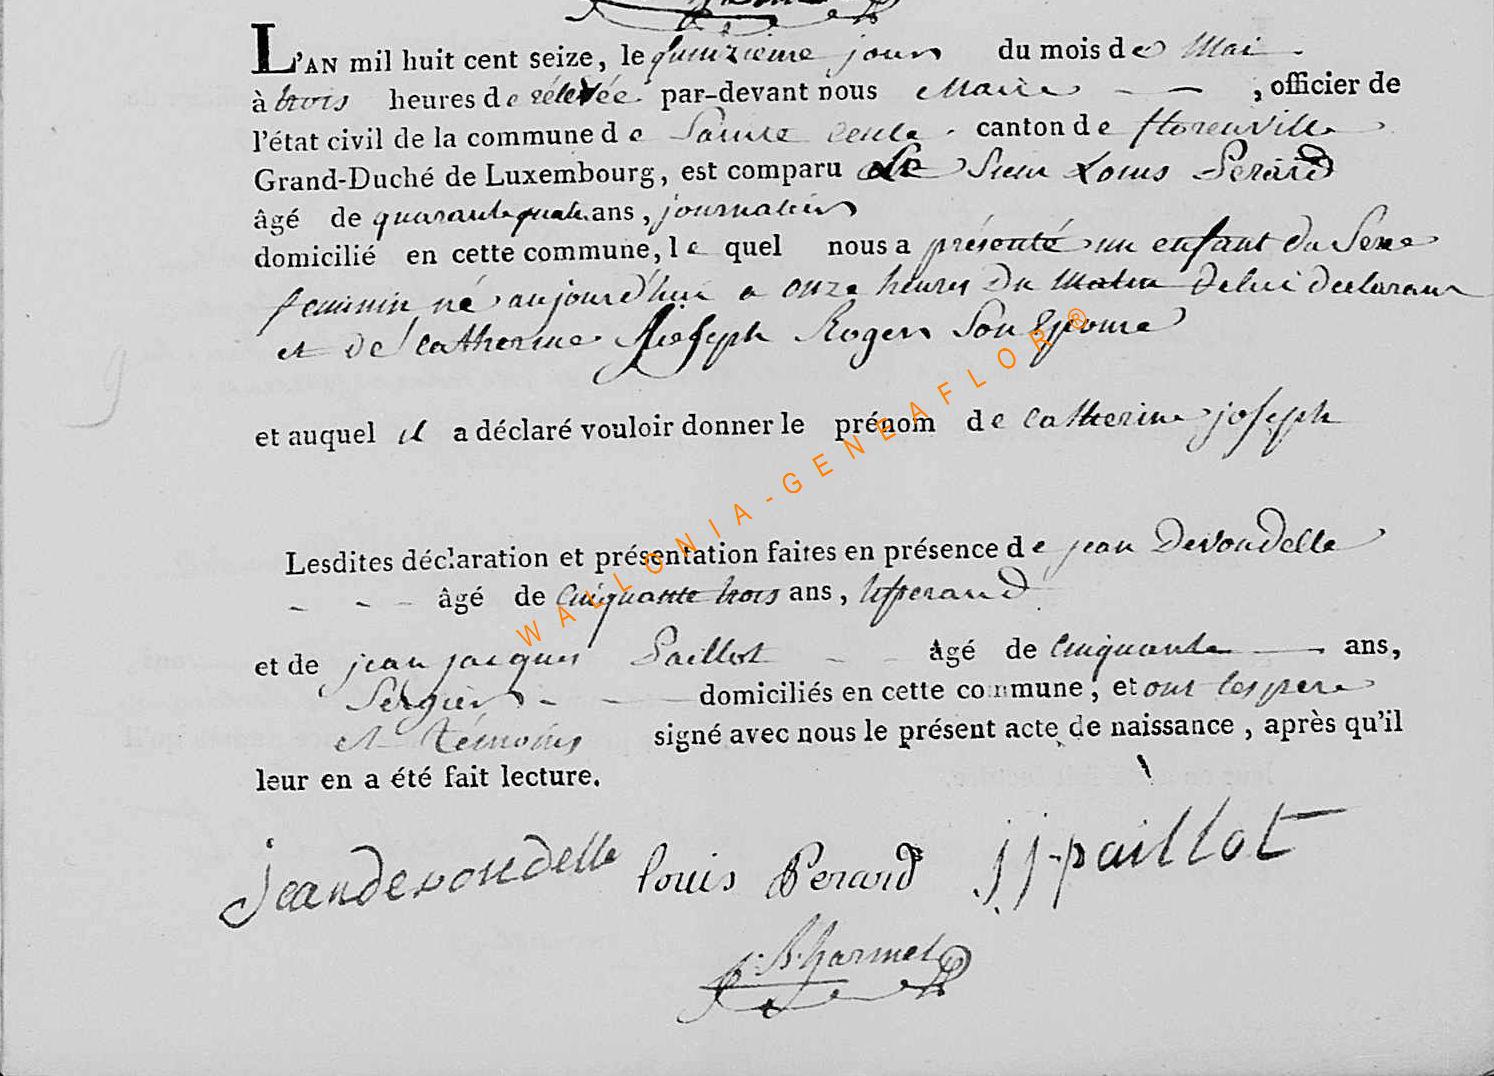 L'AN mil huit cent seize, le quinzieme jour du mois de Mai
à trois heures de rélevée par-devant nous Maire , officier de
l'état civil de la commune de Sainte Cecile canton de florenville
Grand-Duché de Luxembourg, est comparu Le Sieur Louis Perard
âgé de quarante quatre ans, journalier
domicilié en cette commune, le quel nous a présenté un enfant du Sexe
feminin né aujourd'hui a onze heures du matin de lui declarant
et de Catherine Joseph Roger Son Epouse
et auquel il a déclaré vouloir donner le prénom de Catherine joseph
Lesdites déclaration et présentation faites en présence de jean Devondelle
âgé de Cinquante trois ans, tisserand
et de jean jacques Paillot âgé de Cinquante ans,
Sergier domiciliés en cette commune, et ont les pere
et témoins signé avec nous le présent acte de naissance, après qu'il
leur en a été fait lecture.
jean devondelle louis Perard jj paillot
harmel
WALLONIA-GENEAFLOR®